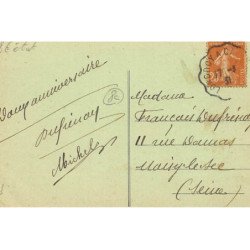 Doux anniversaire
Dufrénoy
Michele
Madame
François Dufrenoy
11 rue Damas
Noisy le Sec
(Seine)